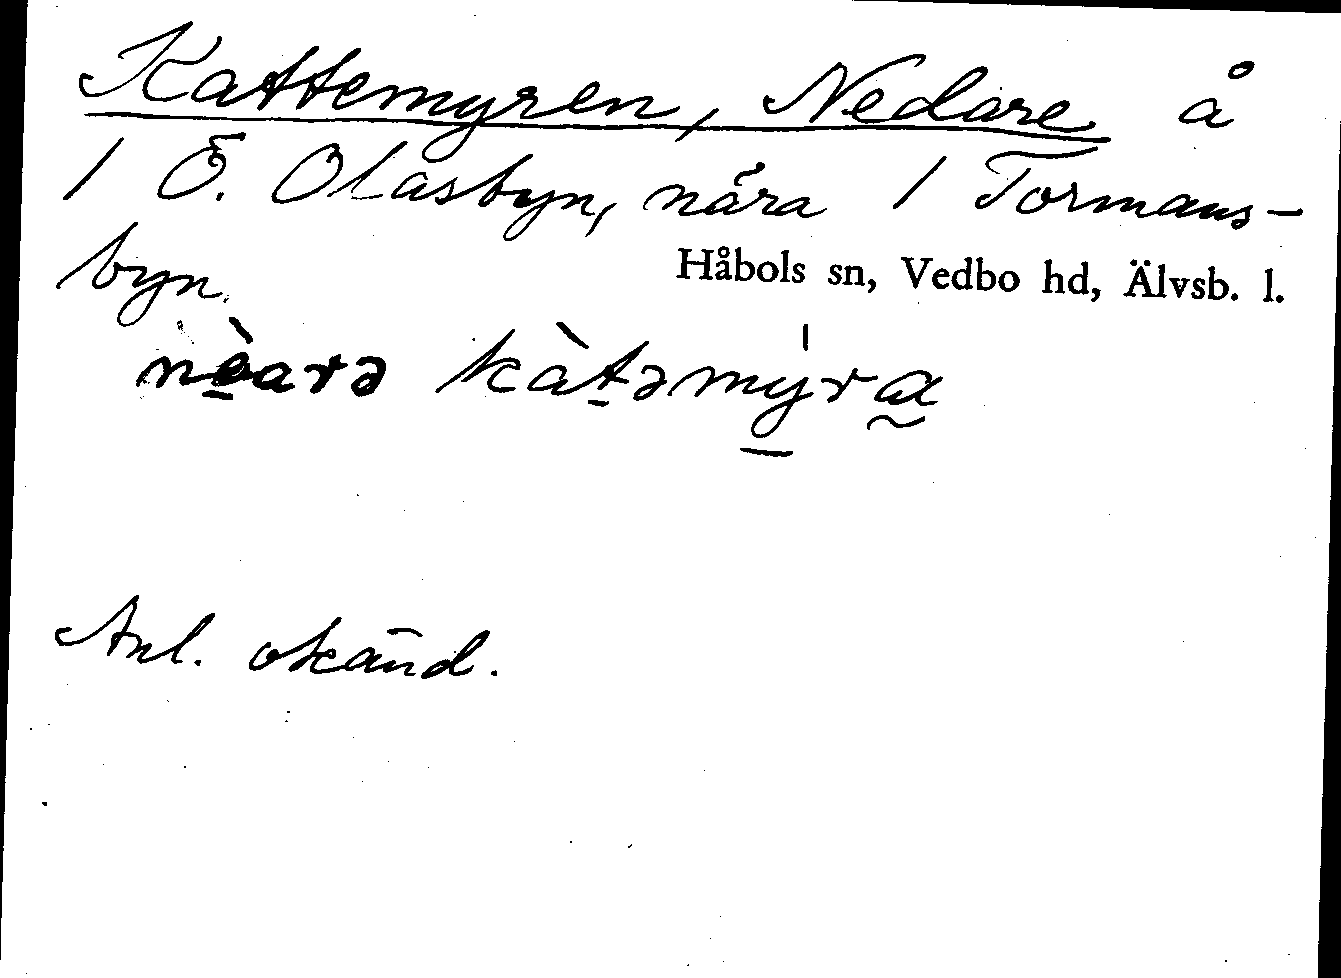 Kattemyren, Nedare å
/ Ö. Olasbyn, nära / Tormans-
byn.
Håbols sn, Vedbo hd, Älvsb. l.
nèarə kàtəmýra
Anl. okänd.